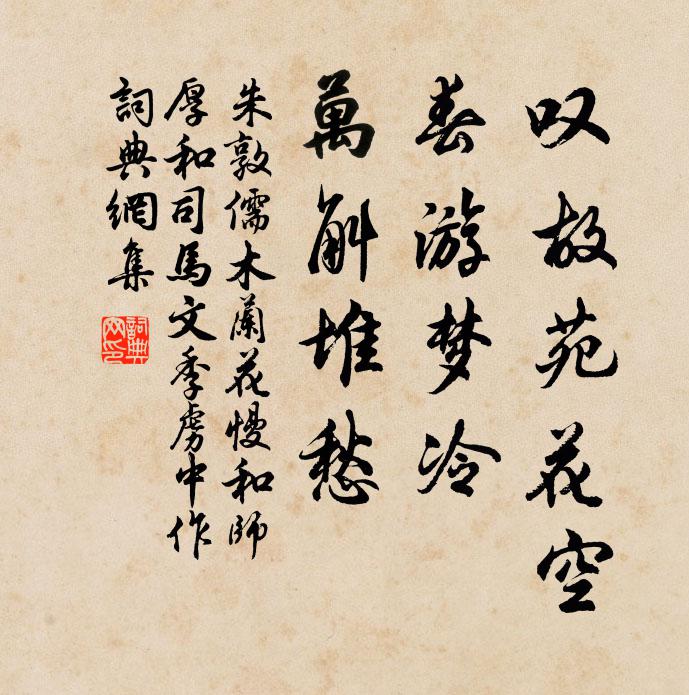 叹故苑花空
春游梦冷
萬斛堆愁
朱敦儒木蘭花慢和師
厚和司馬文季虏中作
詞典網集
詞典
网印